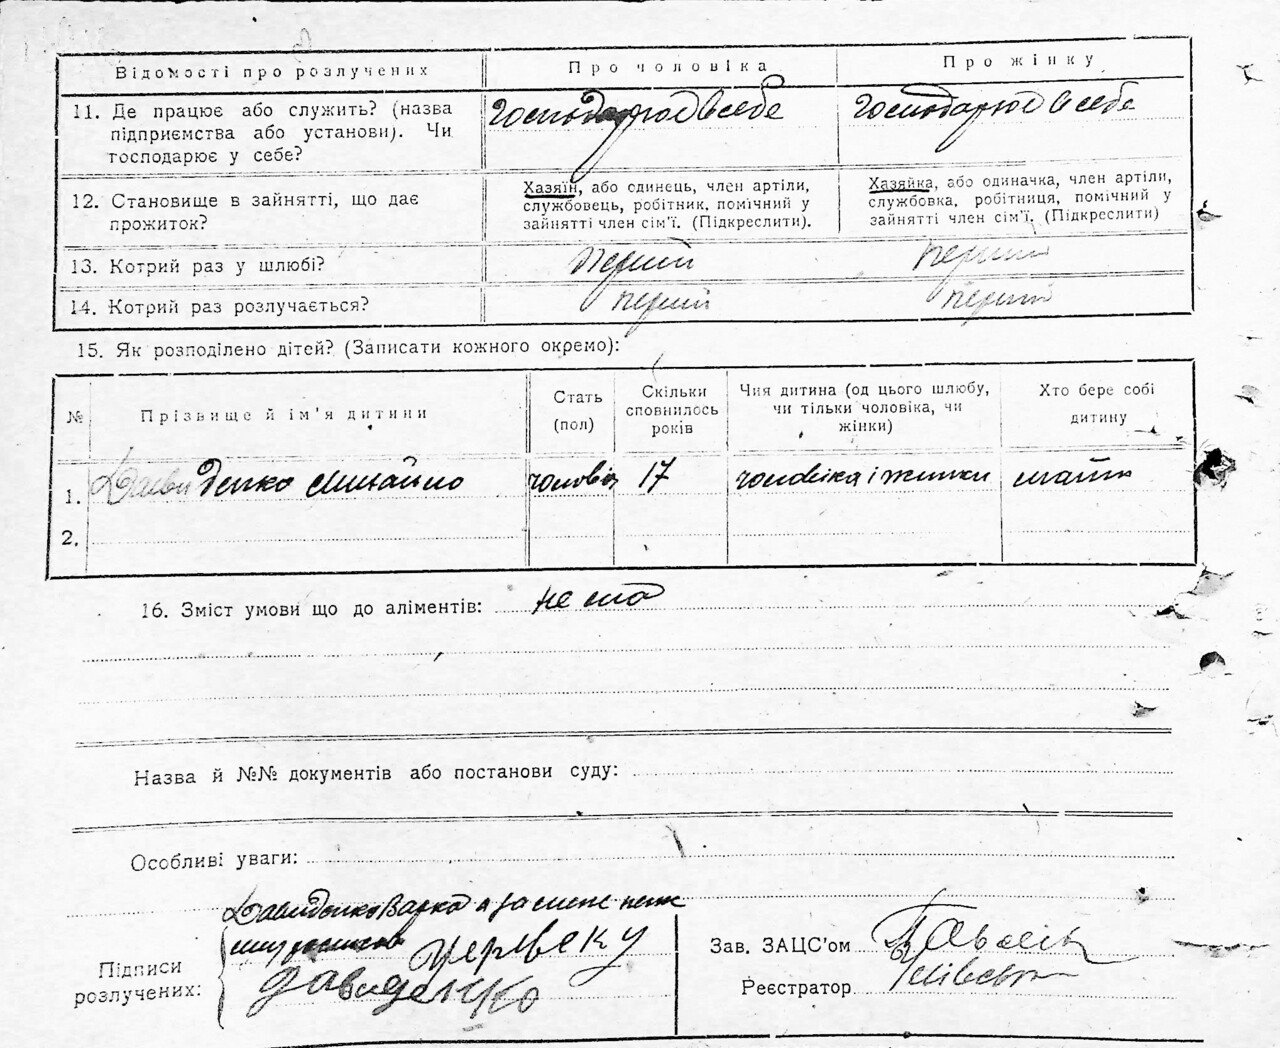 Відомості про розлучених
Про чоловіка
Про жінку
11. Де працює або служить? (назва
підприємства або установи). Чи
господарює у себе?
господарює в себе
господарює в себе
12. Становище в зайнятті, що дає
прожиток?
Хазяїн, або одинець, член артіли,
службовець, робітник, помічний у
зайнятті член сім'ї. (Підкреслити).
Хазяйка, або одиначка, член артіли,
службовка, робітниця, помічний у
зайнятті член сім'ї. (Підкреслити)
13. Котрий раз у шлюбі?
перший
перший
14. Котрий раз розлучається?
перший
перший
15. Як розподілено дітей? (Записати кожного окремо):
№
Прізвище й ім'я дитини
Стать
(пол)
Скільки
сповнилось
років
Чия дитина (од цього шлюбу,
чи тільки чоловіка, чи
жінки)
Хто бере собі
дитину
1. Давиденко Михайло
17
чоловіка і жинки
мати
2.
16. Зміст умови що до аліментів: нема
Назва й №№ документів або постанови суду:
Особливі уваги:
Давиденко Варка а за мене
Підписи
розлучених:
Давиденко
Зав. ЗАЦС'ом
Реєстратор